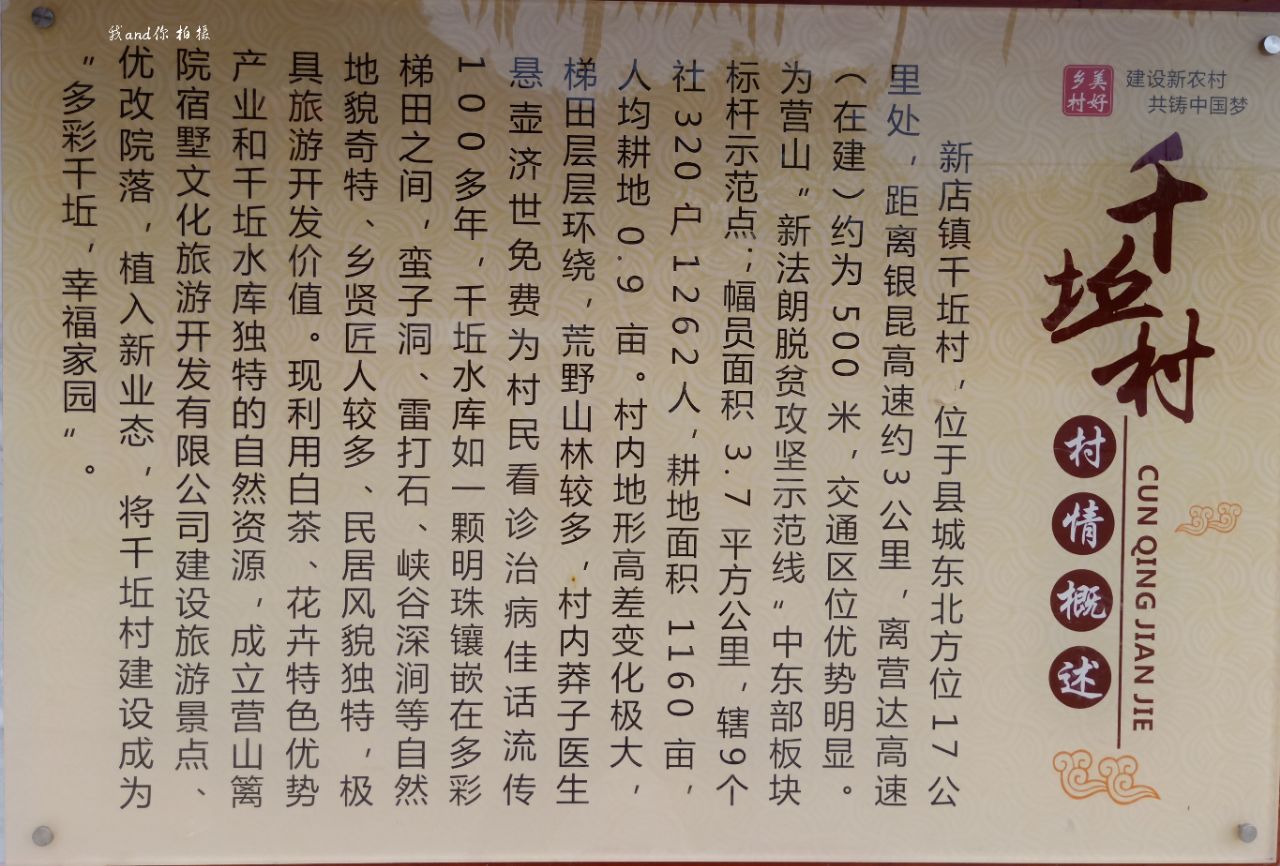 我and你 拍摄
美好
乡村
建设新农村
共铸中国梦
千坵村
村情概述
CUN QING JIAN JIE
新店镇千坵村，位于县城东北方位17公
里处，距离银昆高速约3公里，离营达高速
（在建）约为500米，交通区位优势明显。
为营山“新法朗脱贫攻坚示范线”中东部板块
标杆示范点；幅员面积3.7平方公里，辖9个
社320户1262人，耕地面积1160亩，
人均耕地0.9亩。村内地形高差变化极大，
梯田层层环绕，荒野山林较多，村内莽子医生
悬壶济世免费为村民看诊治病佳话流传
100多年，千坵水库如一颗明珠镶嵌在多彩
梯田之间，蛮子洞、雷打石、峡谷深涧等自然
地貌奇特、乡贤匠人较多、民居风貌独特，极
具旅游开发价值。现利用白茶、花卉特色优势
产业和千坵水库独特的自然资源，成立营山篱
院宿墅文化旅游开发有限公司建设旅游景点、
优改院落，植入新业态，将千坵村建设成为
“多彩千坵，幸福家园”。